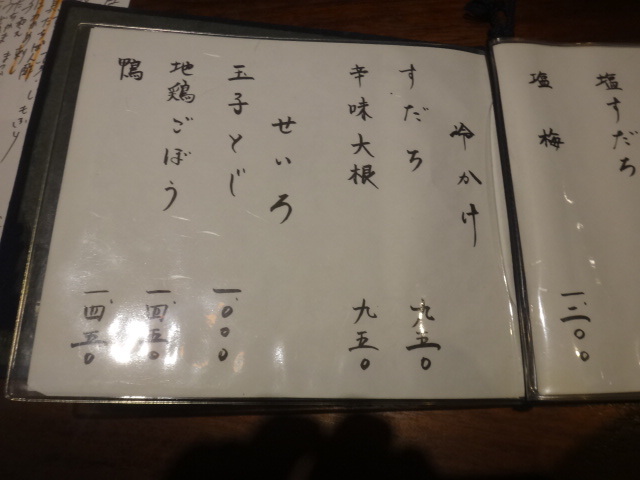 塩すだち
塩梅 一、二〇〇
冷かけ
すだち 九五〇
辛味大根 九五〇
せいろ
玉子とじ 一、〇〇〇
地鶏ごぼう 一、四五〇
鴨 一、四五〇